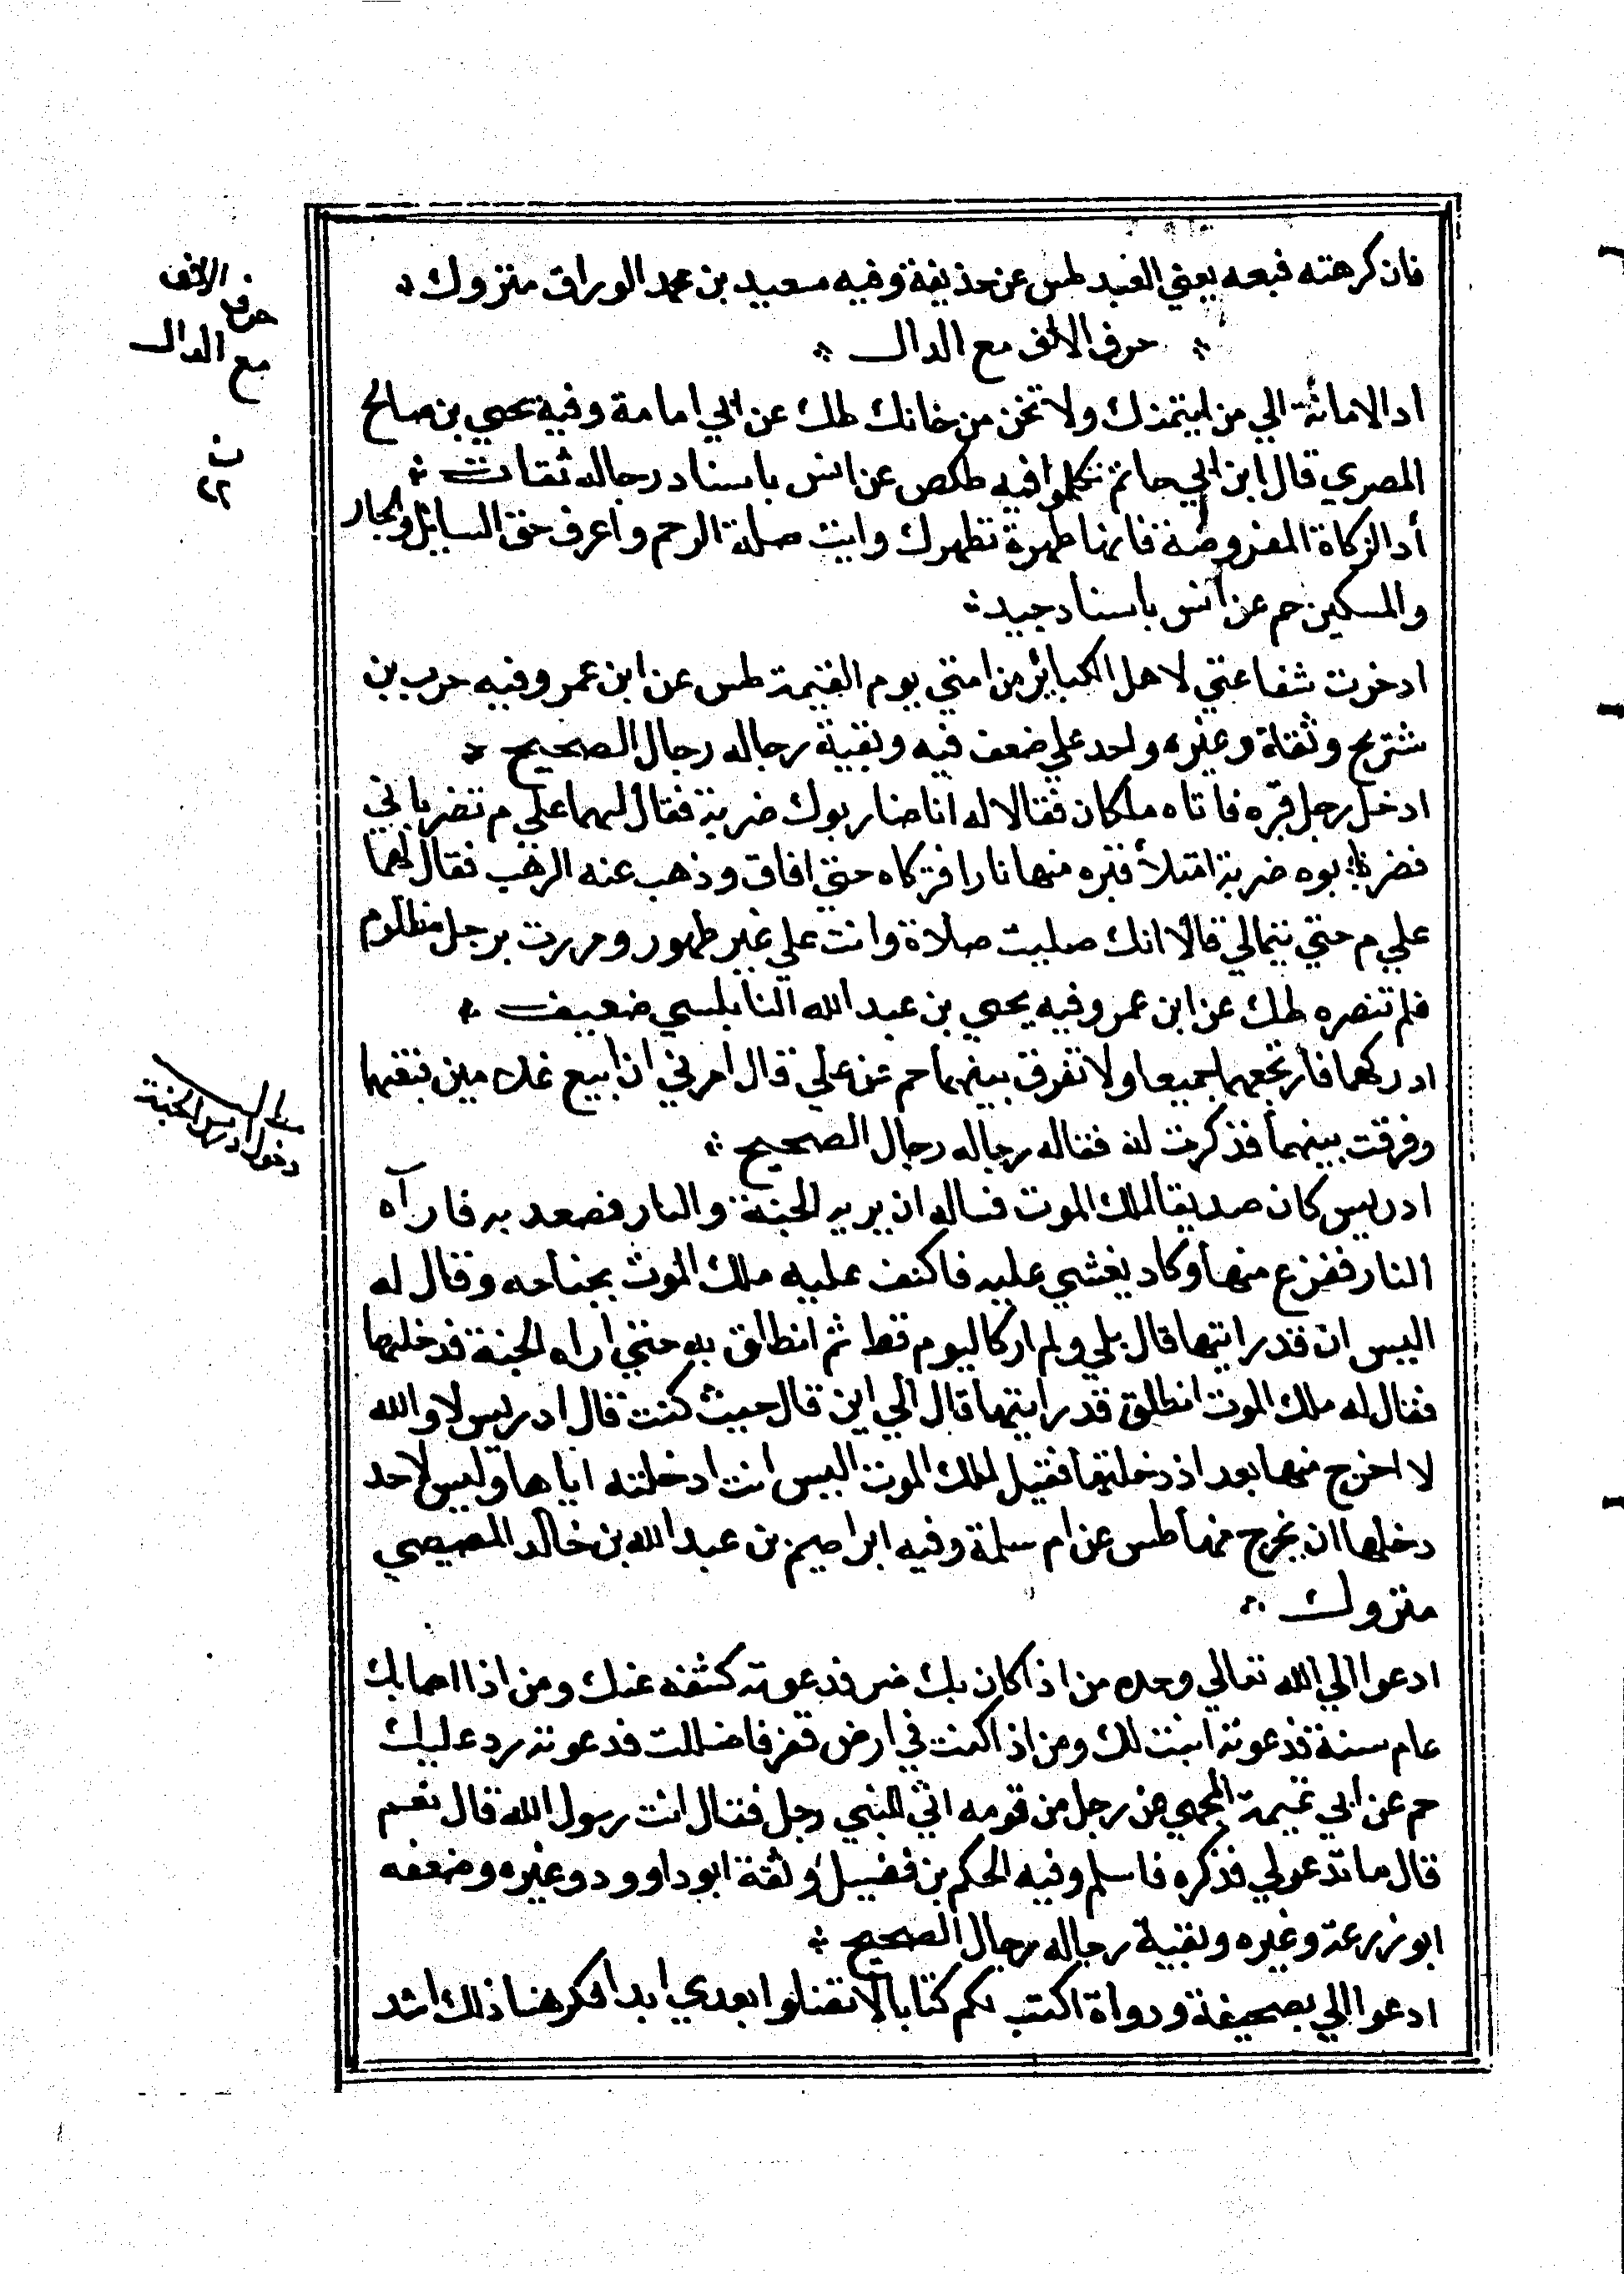 فان كرهته فبعه يعني العبد طس عن حذيفة وفيه سعيد بن محمد الوراق متروك
حرف الالف مع الدال
حرف الالف
مع الدال
اد الامانة الي من ايتمنك ولا تخن من خانك طك عن ابي امامة وفيه يحيي بن صالح
المصري قال ابن ابي حاتم تكلموا فيه طكص عن انس باسناد رجاله ثقات
أد الزكاة المفروضة فانها طهرة تطهرك وايت صلة الرحم واعرف حق السايل والجار
والمسكين حم عن انس باسناد جيد
ادخرت شفاعتي لاهل الكباير من امتي يوم القيمة طس عن ابن عمر وفيه حرب بن
شريح وثقاة وغيره واحد علي ضعف فيه وبقية رجاله رجال الصحيح
ادخل رجل قبره فاتاه ملكان فقالا له انا ضاربوك ضربة فقال لهما علي م تضرباني
فضربوه ضربة امتلأ قبره منها نارا فتركاه حتي افاق وذهب عنه الرهب فقال لهما
علي م حتي قالا انك صليت صلاة وانت علي غير طهور ومررت برجل مظلوم
فلم تنصره طك عن ابن عمر وفيه يحيي بن عبد الله النابلسي ضعيف
ادركهما فارتجعهما جميعا ولا تفرق بينهما حم عن علي قال امرني ان ابيع غلامين فبعتهما
وفرقت بينهما فذكرت له فقاله رجاله رجال الصحيح
مطلب
دخول ادريس الجنة
ادريس كان صديقا لملك الموت فساله ان يريه الجنة والنار فصعد به فارآه
النار ففزع منها وكاد يغشي عليه فاكنف عليه ملك الموت بجناحه وقال له
اليس ان قد رايتها قال بلي ولم ار كاليوم قط ثم انطلق به حتي اراه الجنة فدخلها
فقال له ملك الموت انطلق قد رايتها قال الي اين قال حيث كنت قال ادريس لا والله
لا اخرج منها بعد اذ دخلتها فقيل لملك الموت اليس انت ادخلته اياها وليس لاحد
دخلها ان يخرج منها طس عن ام سلمة وفيه ابراهيم بن عبد الله بن خالد المصيصي
متروك
ادعوا الي الله تعالي وحده من اذا كان بك ضر فدعوته كشفه عنك ومن اذا اصابك
عام سنة فدعوته انبت لك ومن اذا كنت في ارض قفر فاضللت فدعوته رد عليك
حم عن ابي تميمة الهجيمي عن رجل من قومه اتي النبي رجل فقال انت رسول الله قال نعم
قال ما تدعو لي فذكره فاسلم وفيه الحكم بن فضيل وثقة ابو داوود وغيره وضعفه
ابو زرعة وغيره وبقية رجاله رجال الصحيح
ادعوا الي بصحيفة ودواة اكتب لكم كتابا لا تضلوا بعدي ابدا فكرهنا ذلك اشد